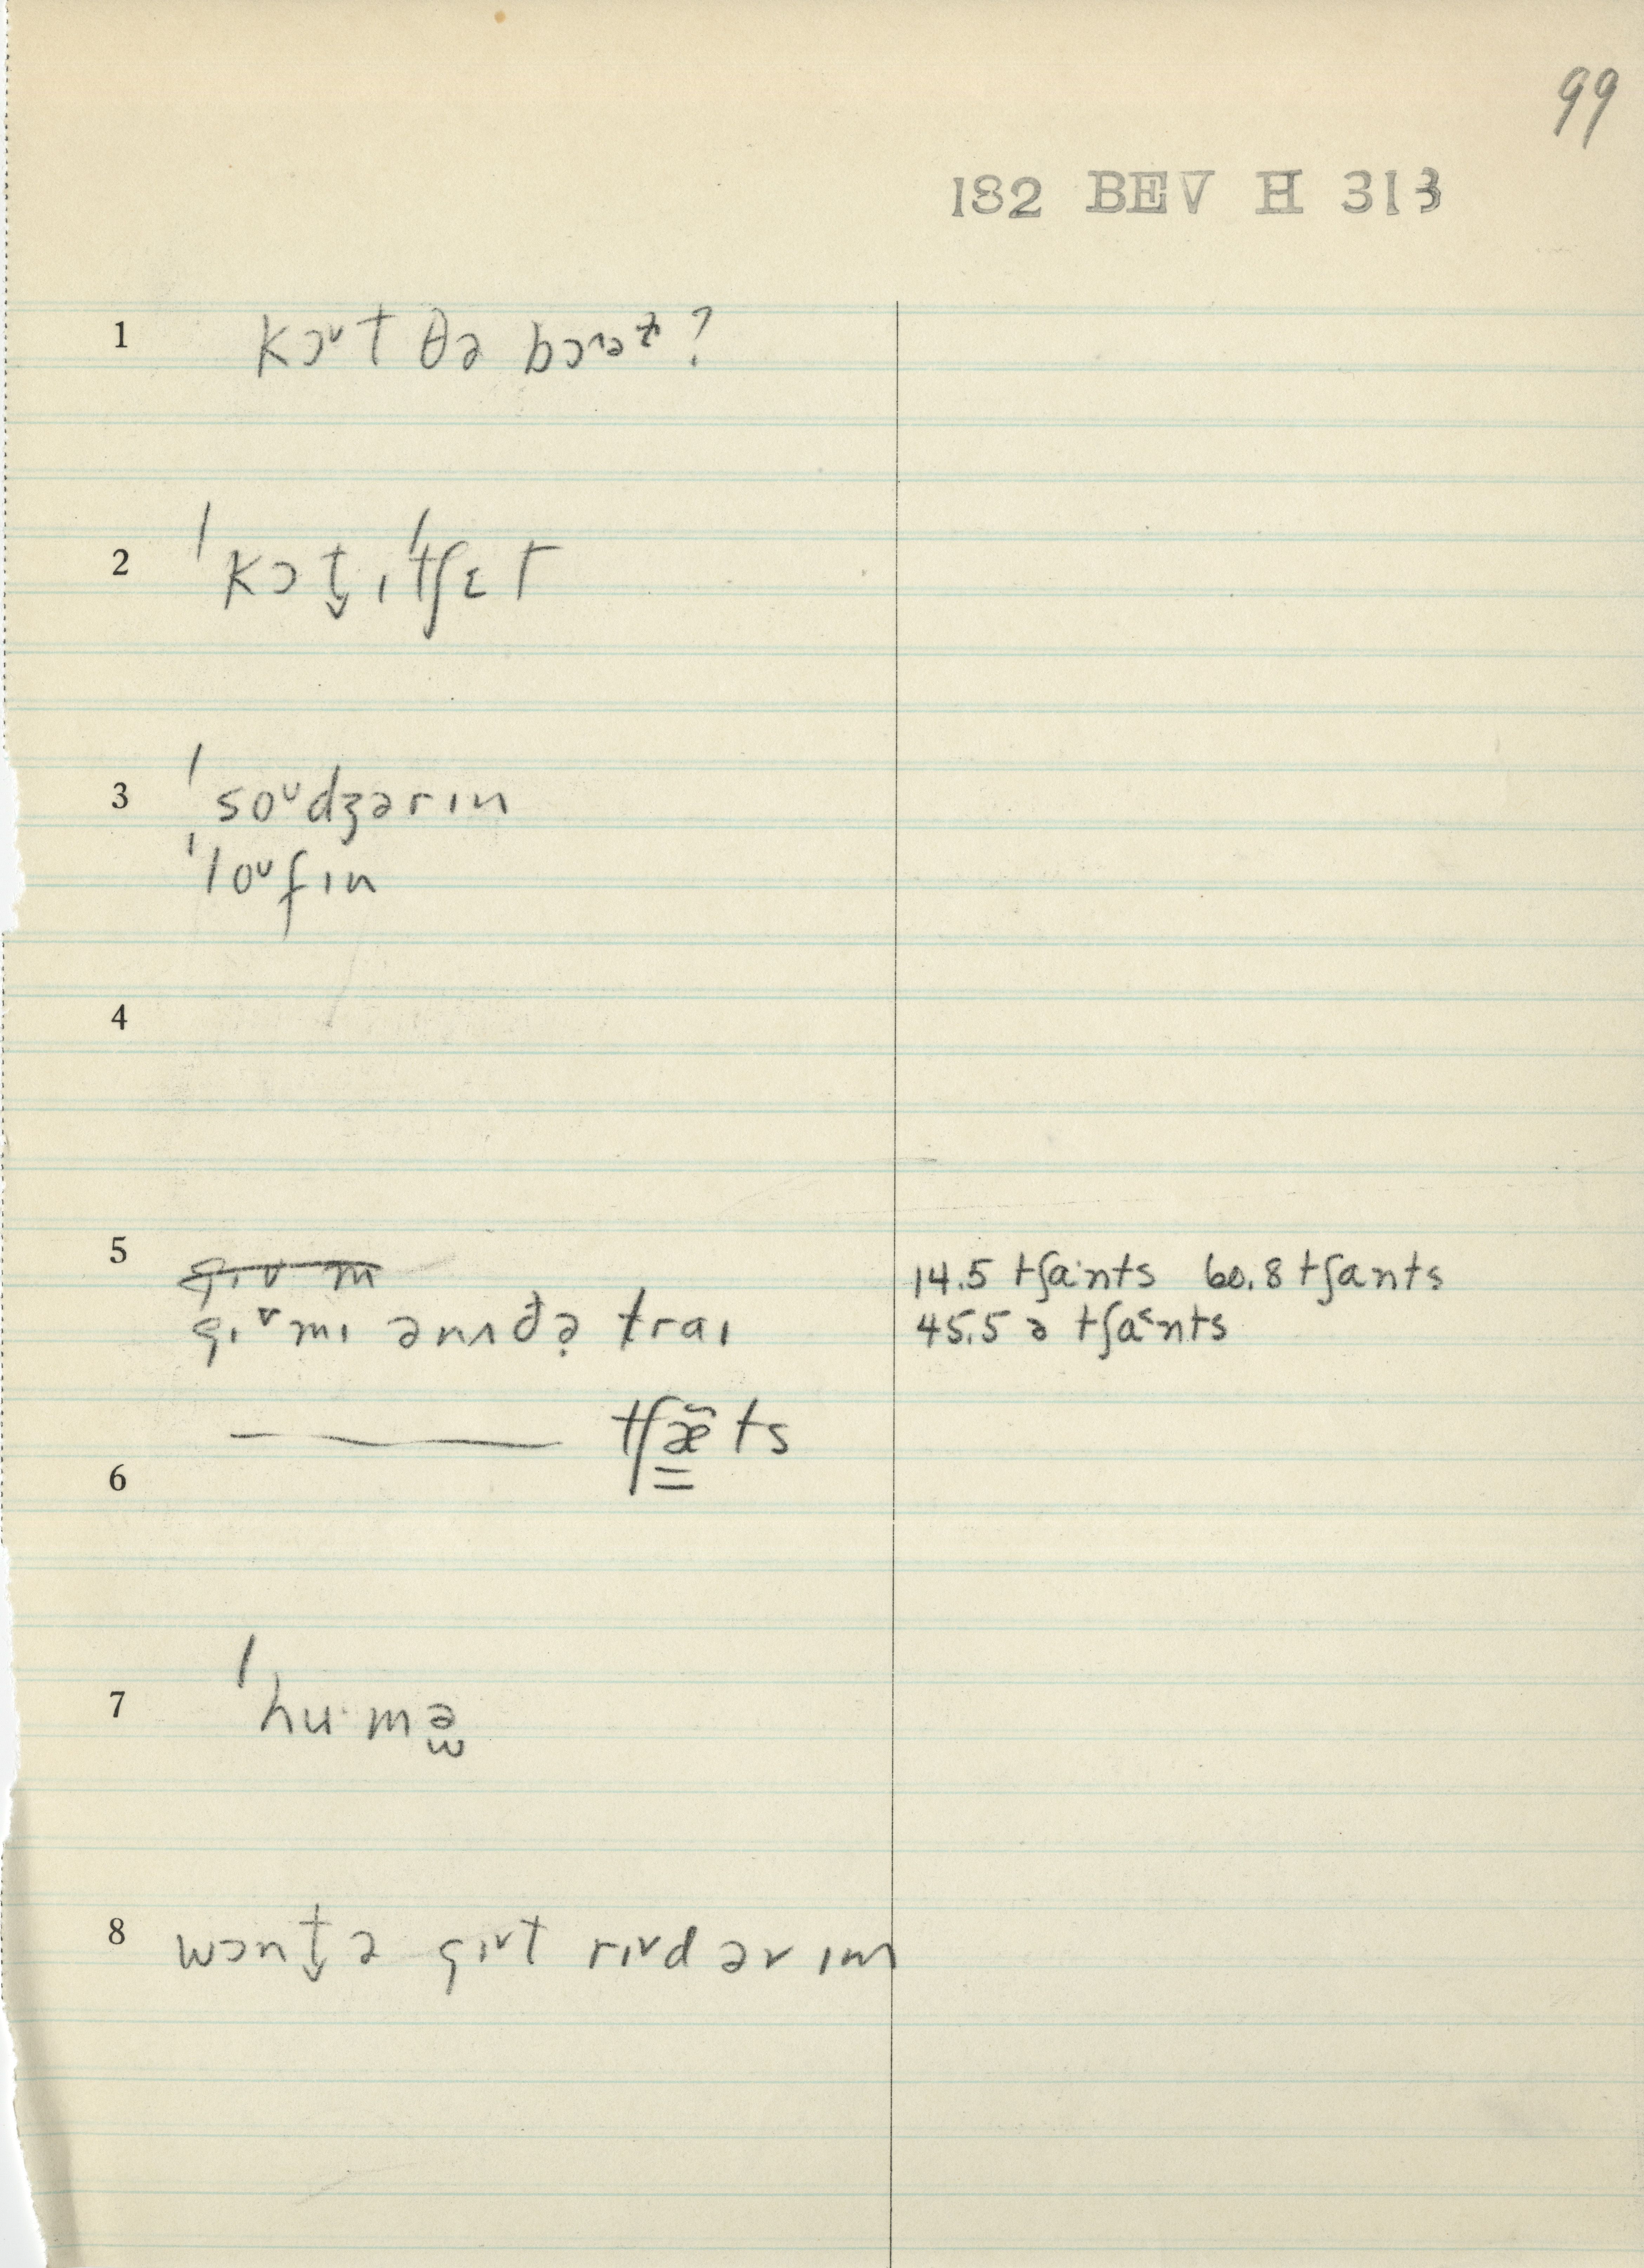 99
182 BEV H 313
1 kɔᶸt θə bɔᶦᵊᶻ?
2 ˈkɔt̬ ɪˈtʃɛt
3 ˈsoᶸdʒərɪn
ˈloᶸfɪn
4
5 gɪv m
gɪᵛmɪ ənʌðə̣ traɪ
14.5 tʃa·nts 60.8 tʃants
45.5 ə tʃaᵋnts
——— tʃæ̃ts
6
7 ˈhu·mə̫
8 wɔnt̬ə gɪᵛt rɪᵛd əv ɪm